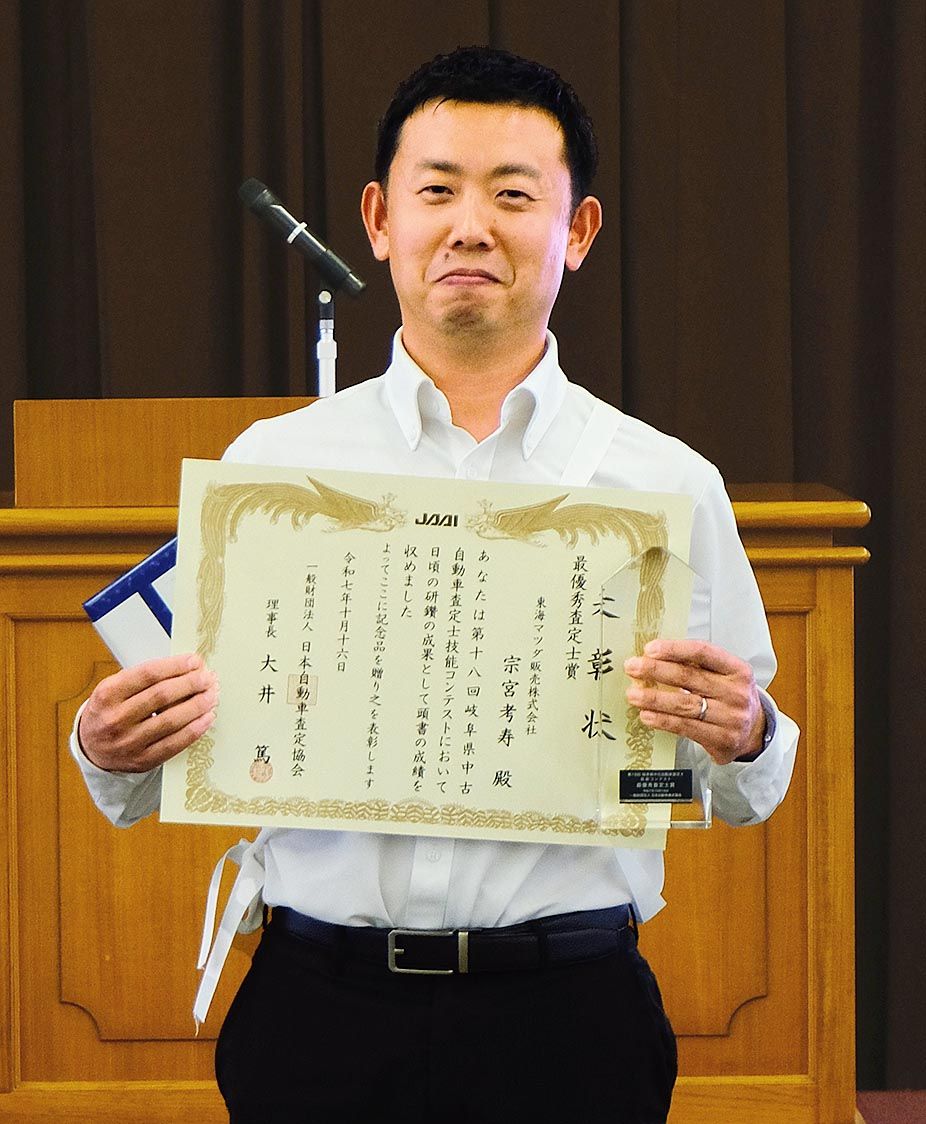 JAAI
表彰状
最優秀査定士賞
東海マツダ販売株式会社
宗宮考寿 殿
あなたは第十八回岐阜県中古
自動車査定士技能コンテストにおいて
日頃の研鑽の成果として頭書の成績を
収めました
よってここに記念品を贈り之を表彰します
令和七年十月十六日
一般財団法人 日本自動車査定協会
理事長 大井 篤
最優秀査定士賞